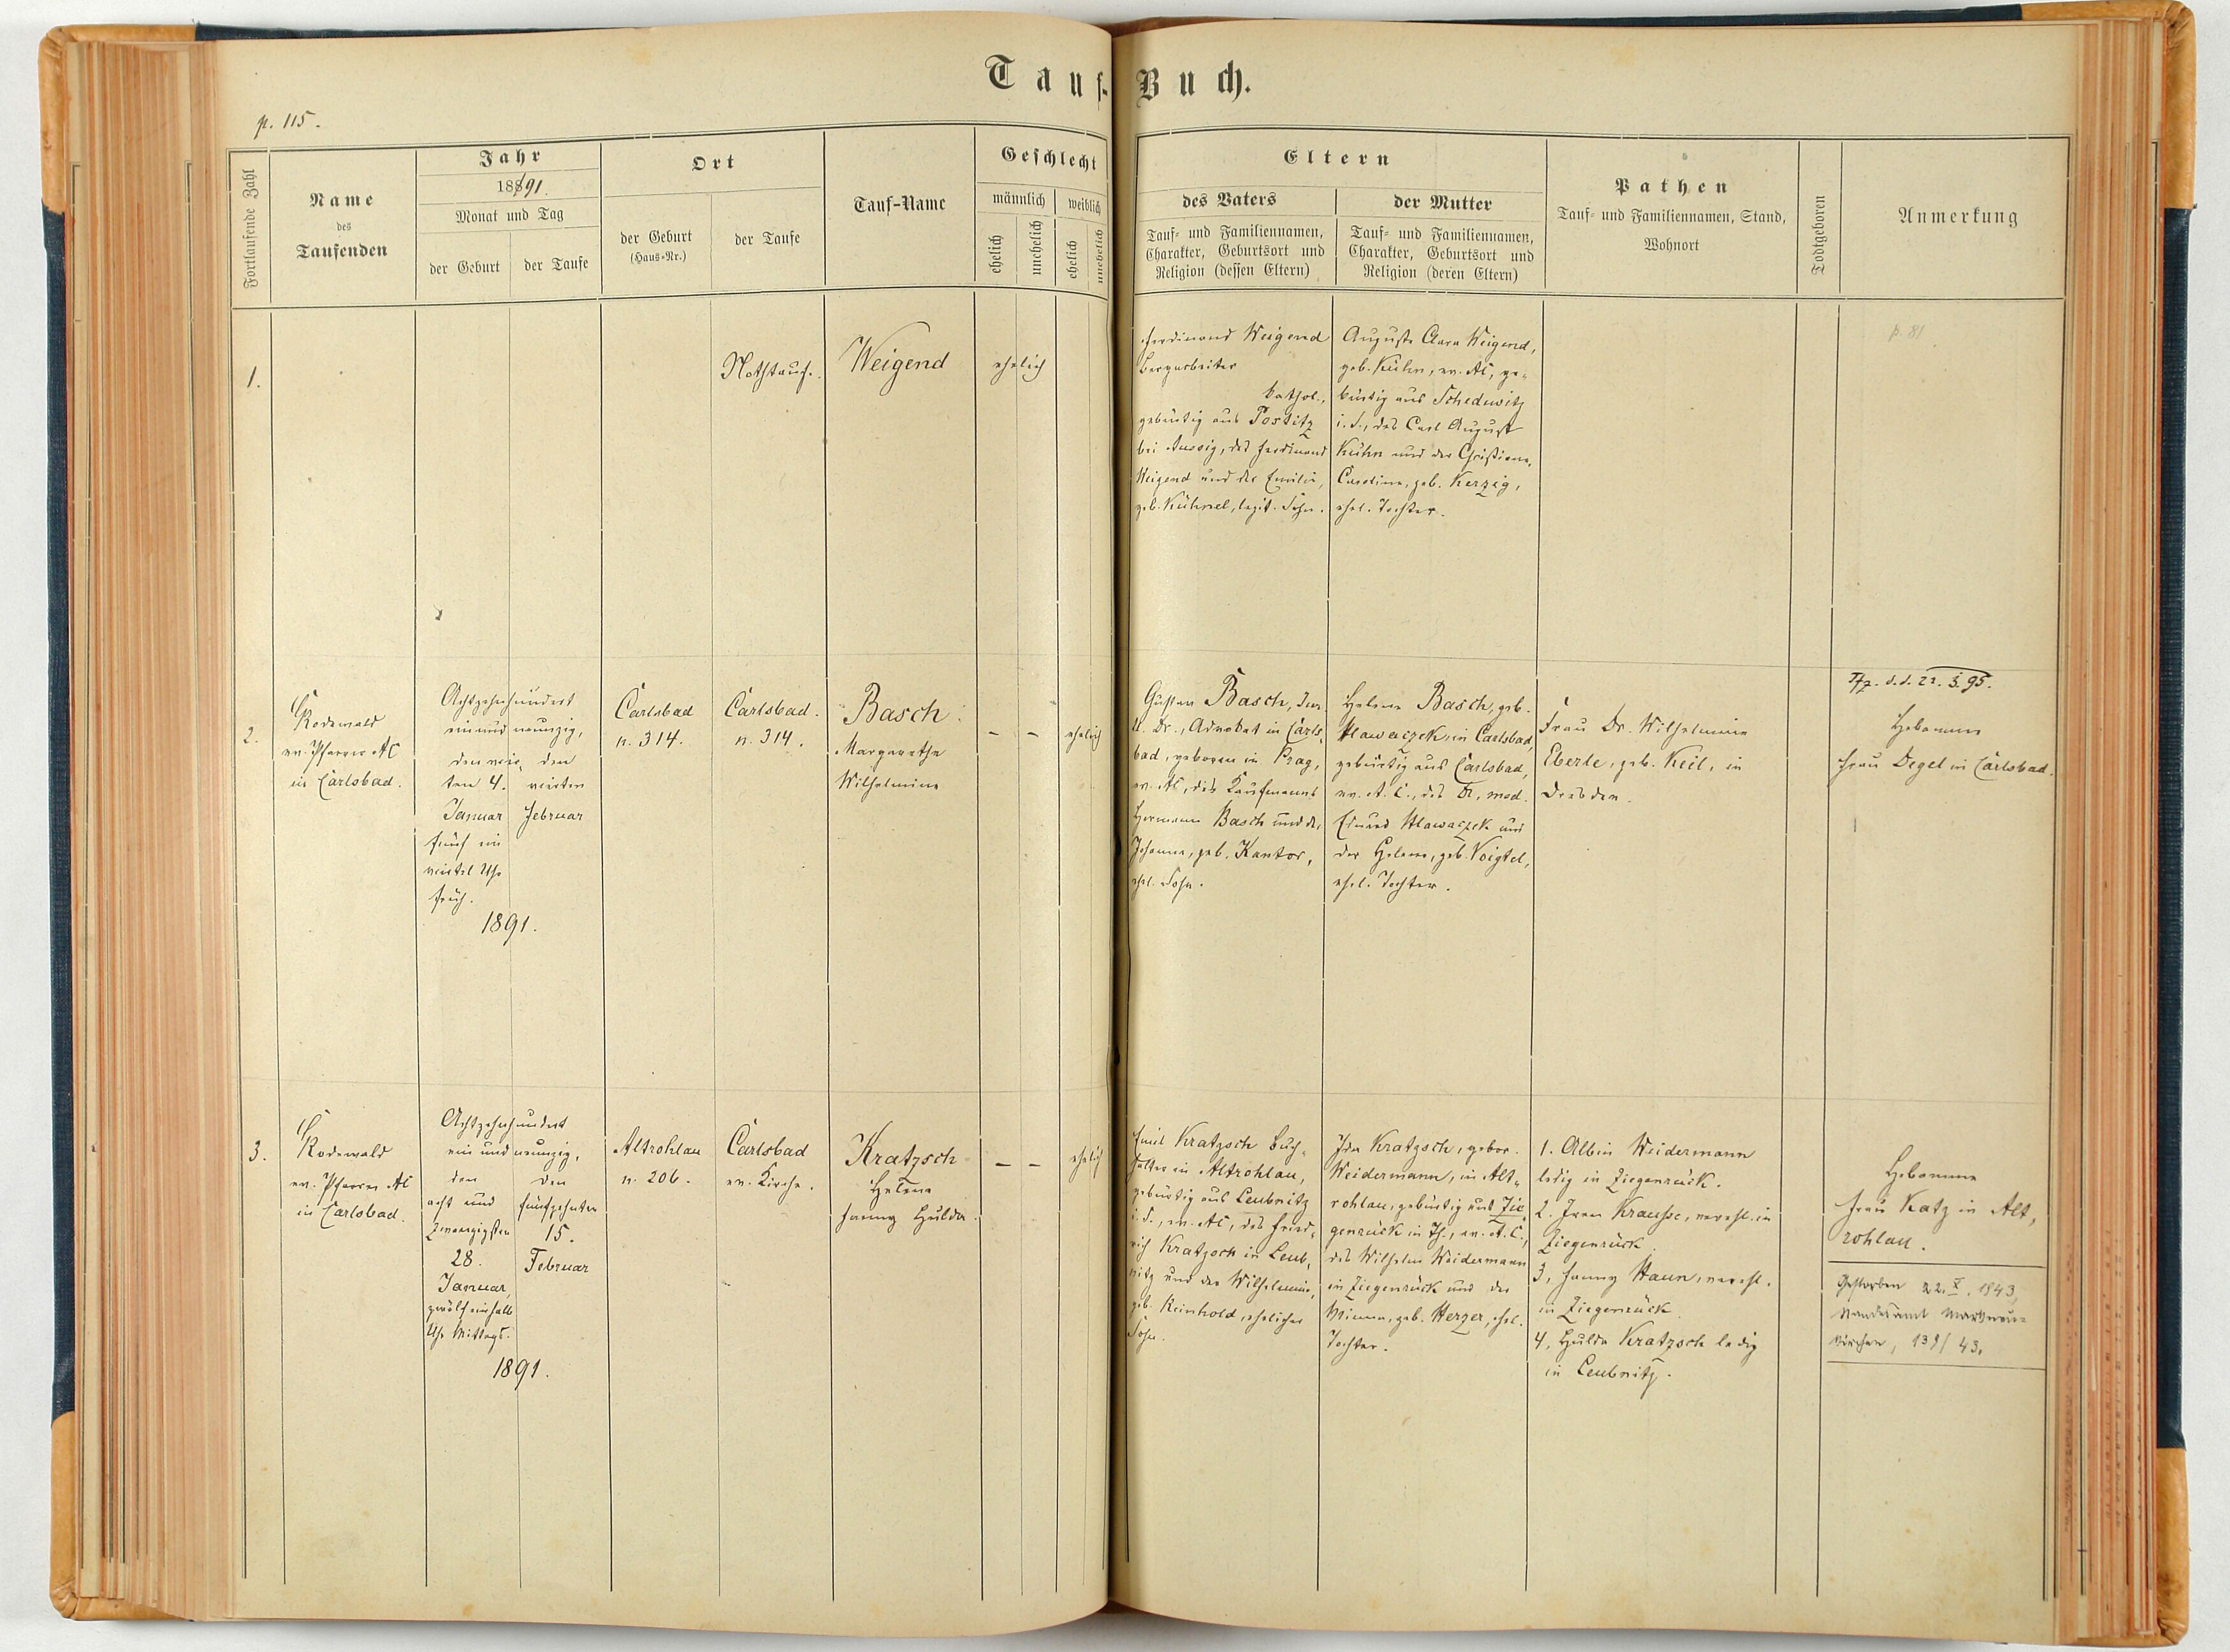 Tauf-Buch.
p. 115.
Fortlaufende Zahl
Name
des
Taufenden
Jahr
1891.
Monat und Tag
der Geburt
der Taufe
Ort
der Geburt
(Haus-Nr.)
der Taufe
Tauf-Name
Geschlecht
männlich
weiblich
ehelich
unehelich
ehelich
unehelich
Eltern
des Vaters
Tauf- und Familiennamen,
Charakter, Geburtsort und
Religion (dessen Eltern)
der Mutter
Tauf- und Familiennamen,
Charakter, Geburtsort und
Religion (deren Eltern)
Pathen
Tauf- und Familiennamen, Stand,
Wohnort
Todtgeboren
Anmerkung
1.
Nothtauf.
Weigend
ehelich
Ferdinand Weigend
Bergarbeiter
kathol.,
gebürtig aus Postitz
bei Aussig, des Ferdinand
Weigend und der Emilie,
geb. Kühnel, legit. Sohn.
Auguste Clara Weigend,
geb. Kühn, ev. AC, ge-
bürtig aus Schedewitz
i. S., des Carl August
Kühn und der Christiane
Caroline, geb. Kerzig,
ehel. Tochter.
p. 81
2.
Rodewald
ev. Pfarrer AC
in Carlsbad.
Achtzehnhundert
einundneunzig,
den vier-
ten 4.
Januar
fünf ein
viertel Uhr
früh.
den
vierten
Februar
1891.
Carlsbad
n. 314.
Carlsbad.
n. 314.
Basch
Margarethe
Wilhelmine
– –
ehelich
Gustav Basch, Jur.
U. Dr., Advokat in Carls-
bad, geboren in Prag,
ev. AC, des Kaufmanns
Hermann Basch und der
Johanna, geb. Kantor,
ehel. Sohn.
Helene Basch, geb.
Hlawaczek, in Carlsbad,
gebürtig aus Carlsbad,
ev. A. C., des Dr. med.
Eduard Hlawaczek und
der Helene, geb. Voigtel,
ehel. Tochter.
Frau Dr. Wilhelmine
Eberle, geb. Keil, in
Dresden.
Tfz. d.d. 22. 3. 95.
Hebamme
Frau Degel in Carlsbad.
3.
Rodewald
ev. Pfarrer AC
in Carlsbad.
Achtzehnhundert
ein und neunzig,
den
acht und
zwanzigsten
28.
Januar,
zwölf einhalb
Uhr Mittags.
den
fünfzehnten
15.
Februar
1891.
Altrohlau
n. 206.
Carlsbad
ev. Kirche.
Kratzsch
Helene
Fanny Hulda.
– –
ehelich
Emil Kratzsch Buch-
halter in Altrohlau,
gebürtig aus Leubnitz
i. S., ev. AC, des Fried-
rich Kratzsch in Leub-
nitz und der Wilhelmine,
geb. Reinhold, ehelicher
Sohn.
Ida Kratzsch, gebor.
Weidermann, in Alt-
rohlau, gebürtig aus Zie-
genrück in Th., ev. A. C.,
des Wilhelm Weidermann
in Ziegenrück und der
Minna, geb. Herzer, ehel.
Tochter.
1. Albin Weidermann
ledig in Ziegenrück.
2. Frau Krauße, verehl. in
Ziegenrück.
3, Fanny Haun, verehl.
in Ziegenrück
4, Hulda Kratzsch ledig
in Leubnitz.
Hebamme
Frau Katz in Alt-
rohlau.
Gestorben 22. X. 1943,
Standesamt Markneu-
kirchen, 139/43.